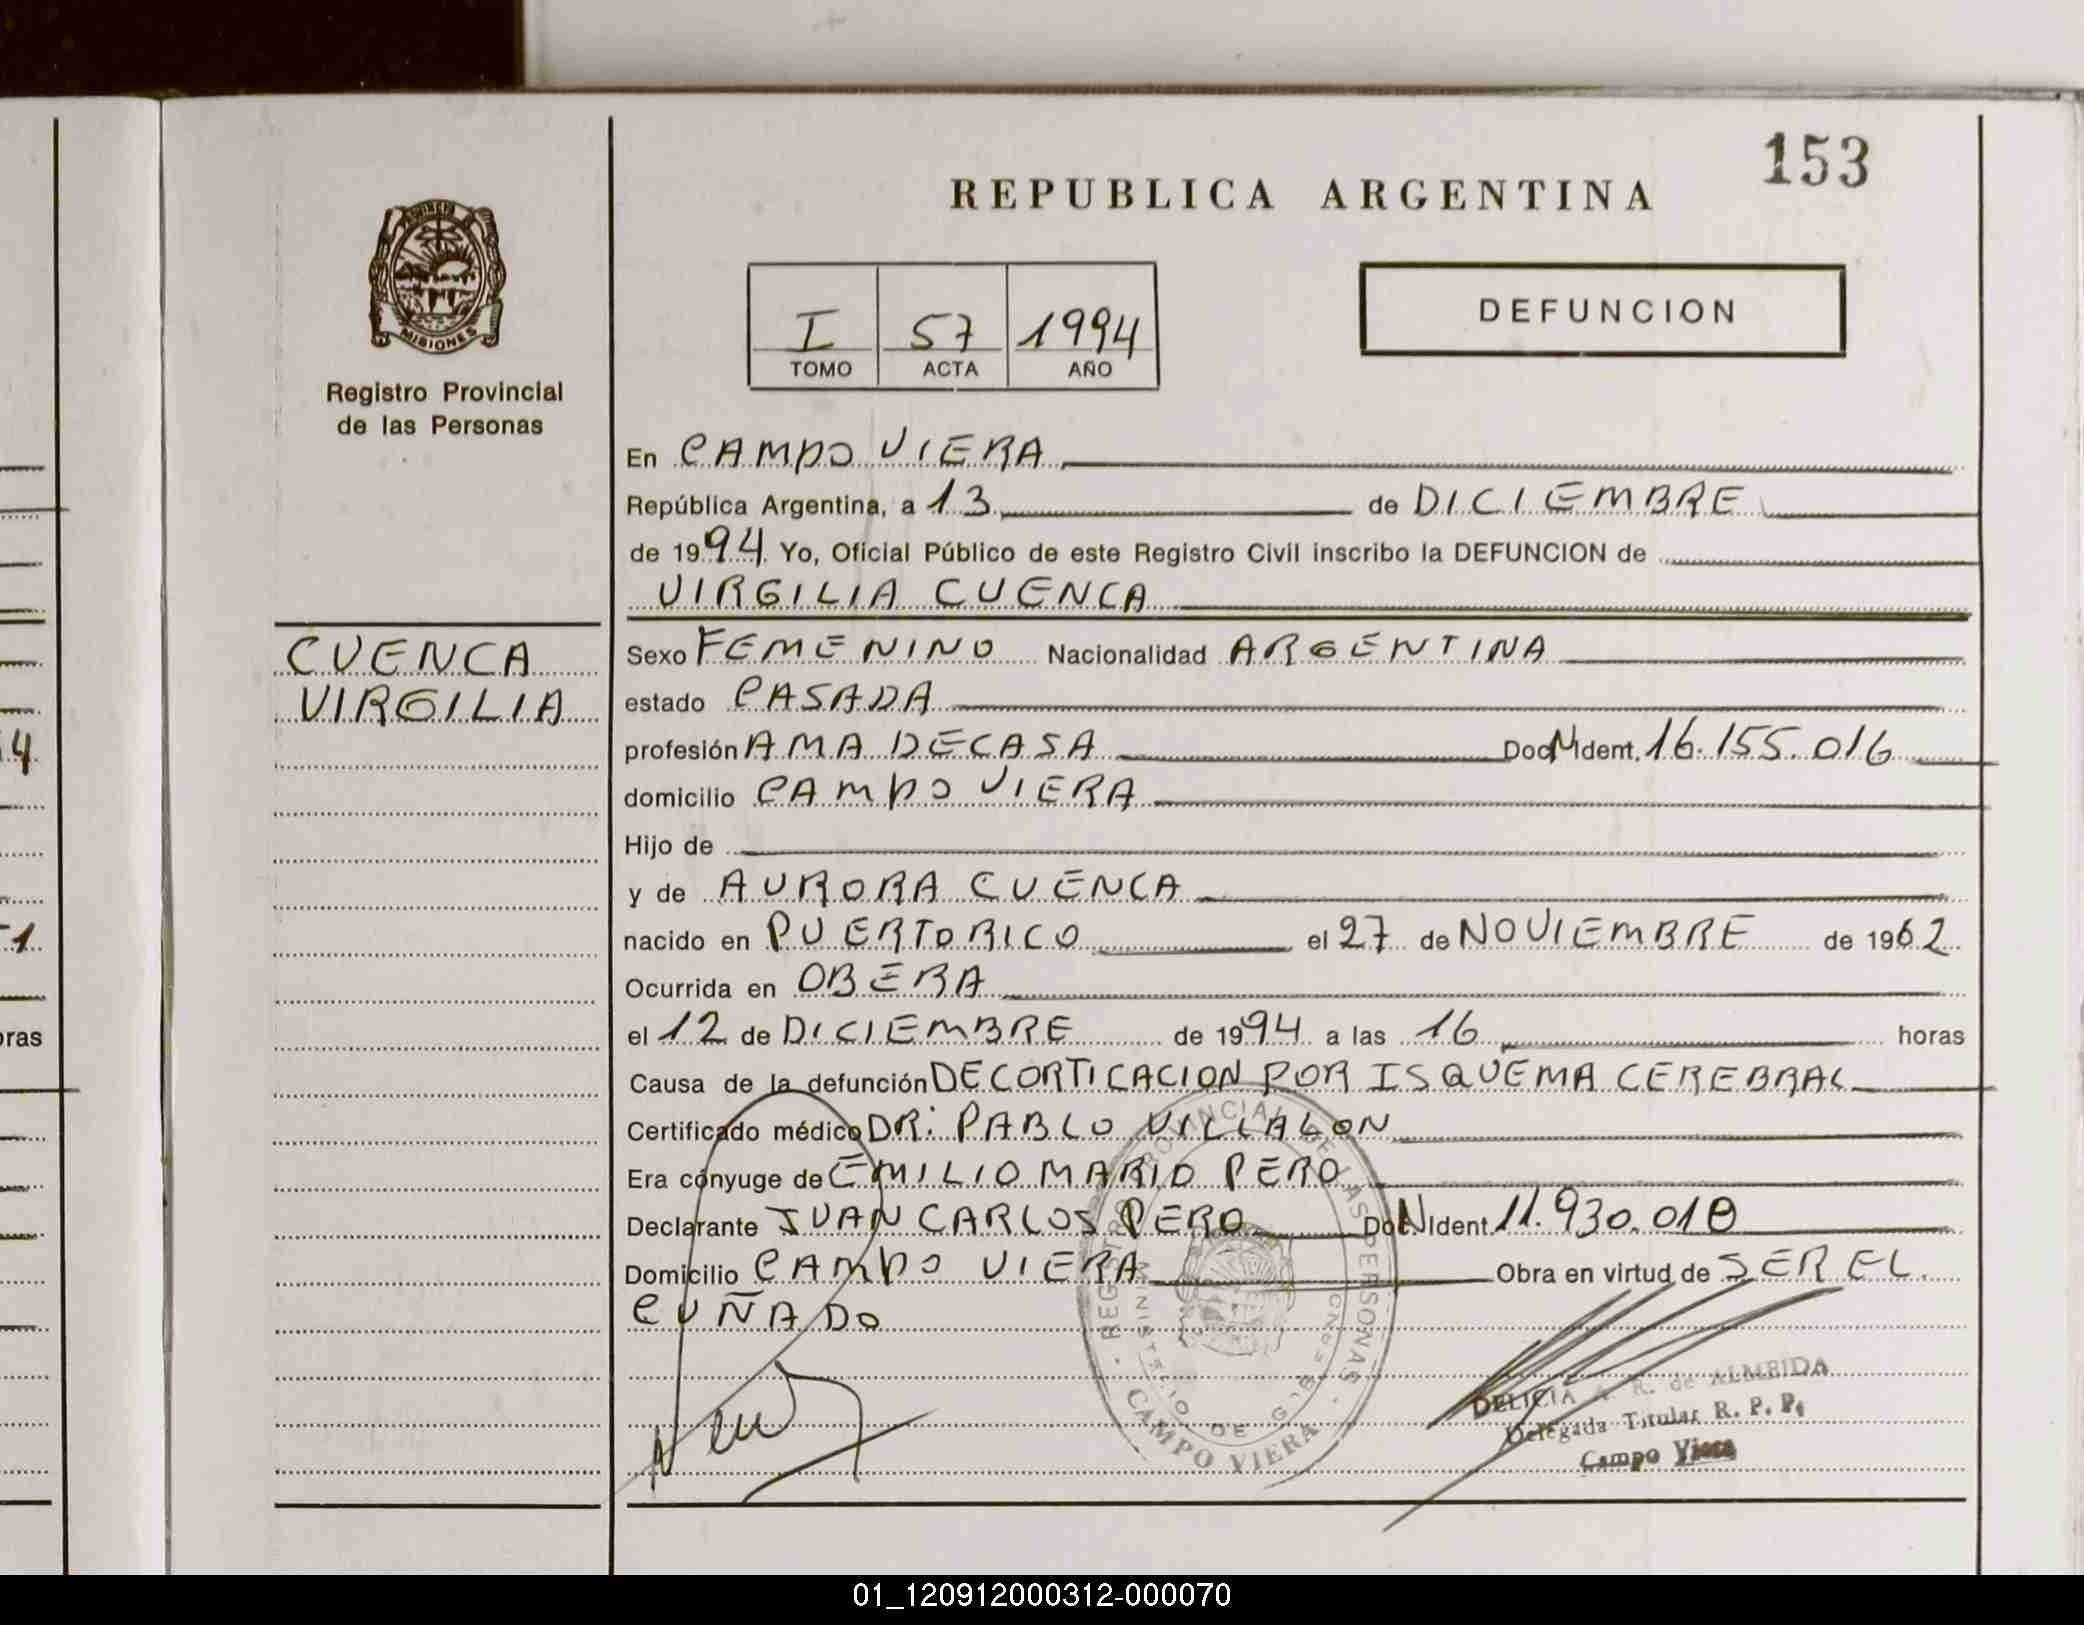 153
REPUBLICA ARGENTINA
MISIONES
Registro Provincial
de las Personas
I 57 1994
TOMO ACTA AÑO
DEFUNCION
CUENCA
VIRGILIA
En CAMPO VIERA
República Argentina, a 13 de DICIEMBRE
de 1994 Yo, Oficial Público de este Registro Civil inscribo la DEFUNCION de
VIRGILIA CUENCA
Sexo FEMENINO Nacionalidad ARGENTINA
estado CASADA
profesión AMA DE CASA Doc N Ident. 16.155.016
domicilio CAMPO VIERA
Hijo de
y de AURORA CUENCA
nacido en PUERTO RICO el 27 de NOVIEMBRE de 1962
Ocurrida en OBERA
el 12 de DICIEMBRE de 1994 a las 16 horas
Causa de la defunción DECORTICACION POR ISQUEMA CEREBRAL
Certificado médico DR: PABLO VILLALON
Era cónyuge de EMILIO MARIO PERO
Declarante JUAN CARLOS PERO Doc N Ident. 11.930.010
Domicilio CAMPO VIERA Obra en virtud de SER EL
CUÑADO
REGISTRO PROVINCIAL DE LAS PERSONAS
MINISTERIO DE GOBIERNO
CAMPO VIERA
DELICIA A. R. de ALMEIDA
Delegada Titular R. P. P.
Campo Viera
4
1
horas
01_120912000312-000070